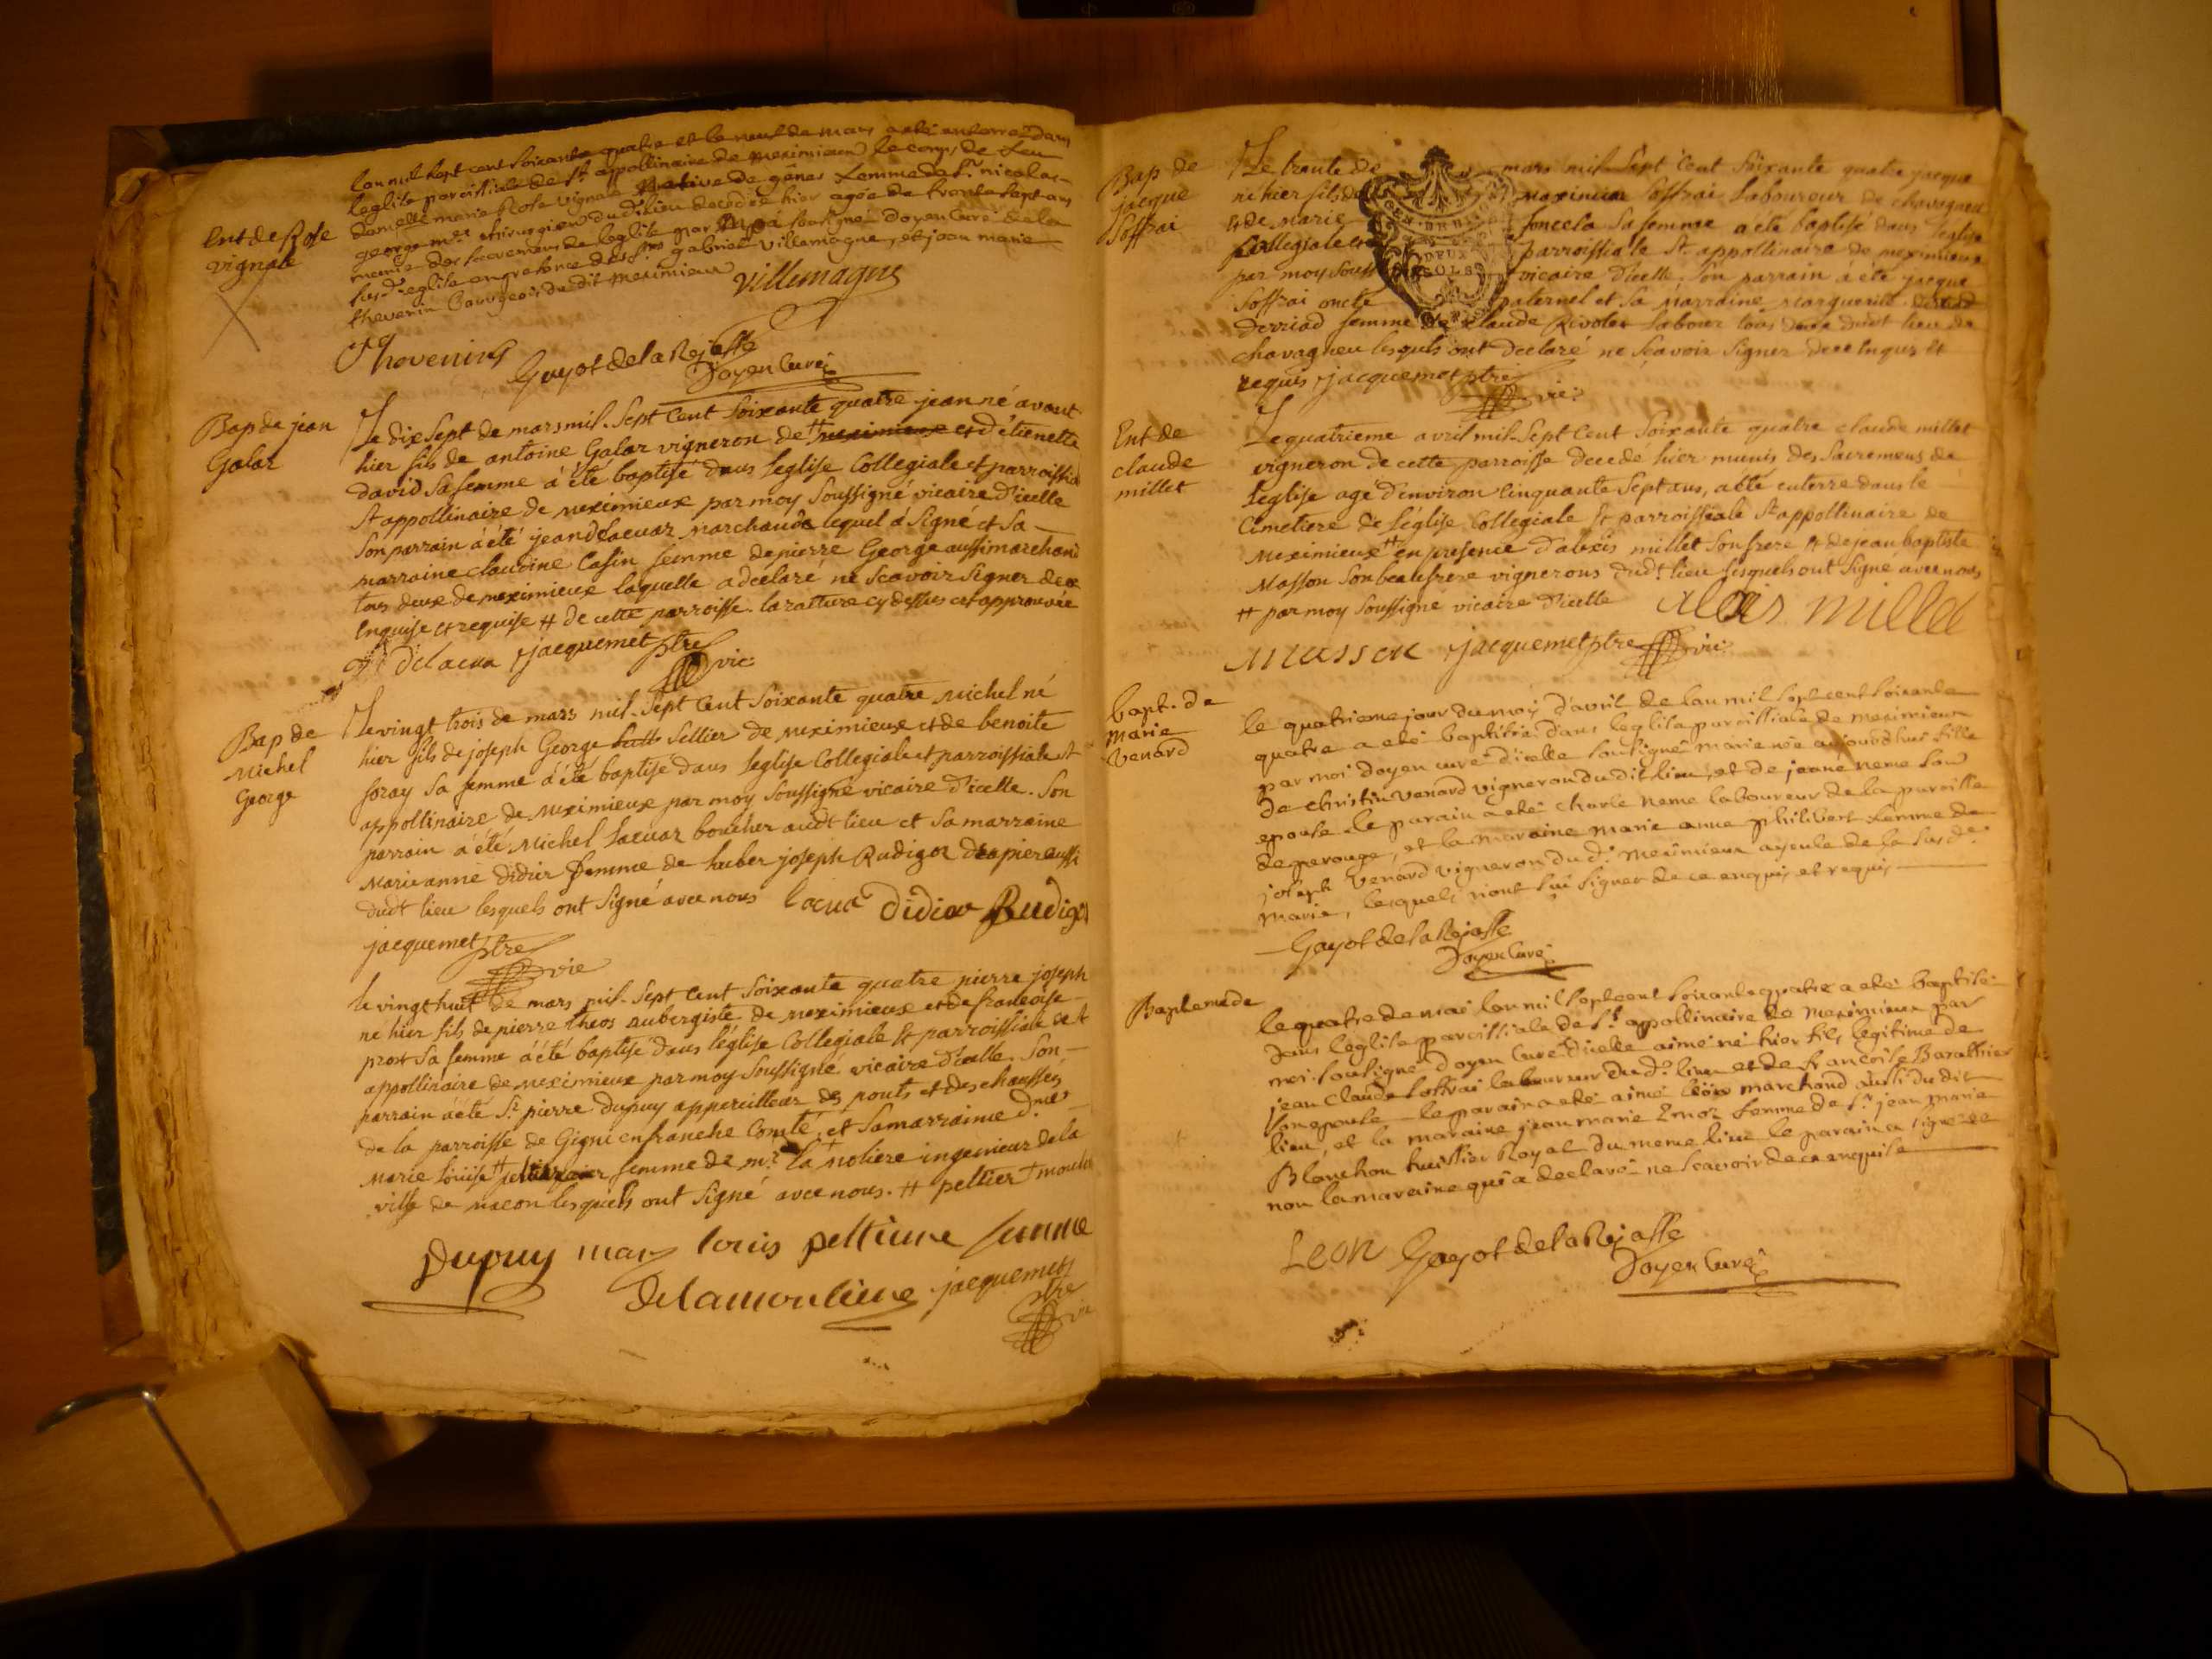 Ent de Rose
vignale
l'an mil sept cent soixante quatre et le neuf de mars a été enterré dans
l'eglise paroissiale de St appollinaire de meximieux le corps de feu
damelle marie Rose vignale native de gênes femme de Sr nicolas
george me chirurgien du dit lieu decedée hier agée de trente sept ans
munie des sacremens de l'eglise par moi soussigné doyen curé de la
susd. eglise en presence des srs gabriel villemagne, et jean marie
thevenin bourgeois du dit meximieux
villemagne
Thevenin
Guyot de la Rejasse
Doyen Curé
Bap de jean
Galar
Le dix sept de mars mil. Sept Cent Soixante quatre jean né avant
hier fils de antoine Galar vigneron de # meximieux et d'étienette
david sa femme à été baptisé dans leglise Collegiale et parroissial
St appollinaire de meximieux par moy soussigné vicaire d'icelle
Son parrain à été jean delacuar marchand lequel à signé et sa
marraine claudine Casin femme de pierre George aussi marchand
tous deux de meximieux laquelle a declaré ne scavoir signer de ce
enquise et requise # de cette parroisse. la rature cy dessus est approuvée
delacua jacquemet ptre
vic:
Bap de
Michel
George
Le vingt trois de mars mil. Sept Cent Soixante quatre Michel né
hier fils de joseph George Sellier de meximieux et de benoite
foray sa femme à été baptisé dans leglise Collegiale et parroissiale St
appollinaire de meximieux par moy soussigné vicaire d'icelle. Son
parrain à été Michel lacuar boucher audt lieu et sa marraine
Marie anne didier femme de huber joseph Rudigoz drapier aussi
dudt lieu lesquels ont signé avec nous lacua didier Rudigoz
jacquemet ptre
vic
le vingt huit de mars mil. Sept Cent Soixante quatre pierre joseph
ne hier fils de pierre theos aubergiste de meximieux et de francoise
prost sa femme à été baptisé dans l'église Collegiale et parroissiale de st
appollinaire de meximieux par moy Soussigné vicaire d'icelle. Son
parrain à été Sr pierre Dupuy appareilleur des ponts et des chaussées
de la parroisse de Gigni en franche Comté, et sa marraine dme
Marie Louise # femme de mr la + noliere ingenieur de la
ville de macon lesquels ont signé avec nous. # peltier + moul
Dupuy mary louis peltieure femme
delamouliere jacquemet
ptre
vic
Bap de
jacque
Soffrai
Le trente de mars mil Sept Cent Soixante quatre jacque
né hier fils de maximin Soffrai laboureur de chavagneu
et de marie foncela sa femme a été baptisé dans leglise
Collegiale et parroissiale St appollinaire de meximieux
par moy souss vicaire d'icelle. son parrain à été jacque
Soffrai oncle paternel et sa marraine marguerite
derriad femme de claude Rivolet labour tous deux dudt lieu de
chavagneu lesquels ont declaré ne scavoir signer de ce enquis et
requis jacquemet ptre
vic:
GEN. DE
DEUX
SOLS
Ent de
claude
millet
Le quatrieme avril mil. Sept Cent Soixante quatre claude millet
vigneron de cette parroisse decede hier munis des Sacremens de
l'eglise agé d'environ Cinquante Sept ans, a été enterre dans le
Cimetiere de l'église Collegiale et parroissiale St appollinaire de
meximieux # en presence d'alexis millet son frere et de jean baptiste
Masson Son beaufrere vignerons dudt lieu lesquels ont Signé avec nous
# par moy Soussigné vicaire d'icelle alexis millet
masson jacquemet ptre vic:
bapt. de
marie
Venard
le quatrieme jour du moy d'avril de l'an mil sept cent soixante
quatre a eté baptisée dans l'eglise paroissiale de meximieux
par moi doyen curé d'icelle soussigné marie née aujourd'hui fille
de christin venard vigneron du dit lieu, et de jeane neme son
epouse. le parain a eté charle neme laboureur de la paroisse
de perouge, et la maraine marie anne philibert femme de
joseph venard vigneron du d. meximieux ayeule de la sus de
marie, lesquels n'ont sui signer de ce enquis et requis
Guyot de la Rejasse
Doyen Curé
Bapteme de
le quatre de mai l'an mil sept cent soixante quatre a eté baptisé
dans l'eglise paroissiale de St appollinaire de meximieux par
moi soussigné doyen curé d'icelle aimé né hier fils legitime de
jean claude soffrai laboureur du d. lieu et de francoise Barathier
son epouse le parain a eté aimé léon marchand aussi du dit
lieu, et la maraine jean marie femme de sr jean marie
Blanchon huissier Royal du meme lieu le parain a signé et
non la maraine qui a declaré ne scavoir de ce enquise
Leon Guyot de la Rejasse
Doyen Curé